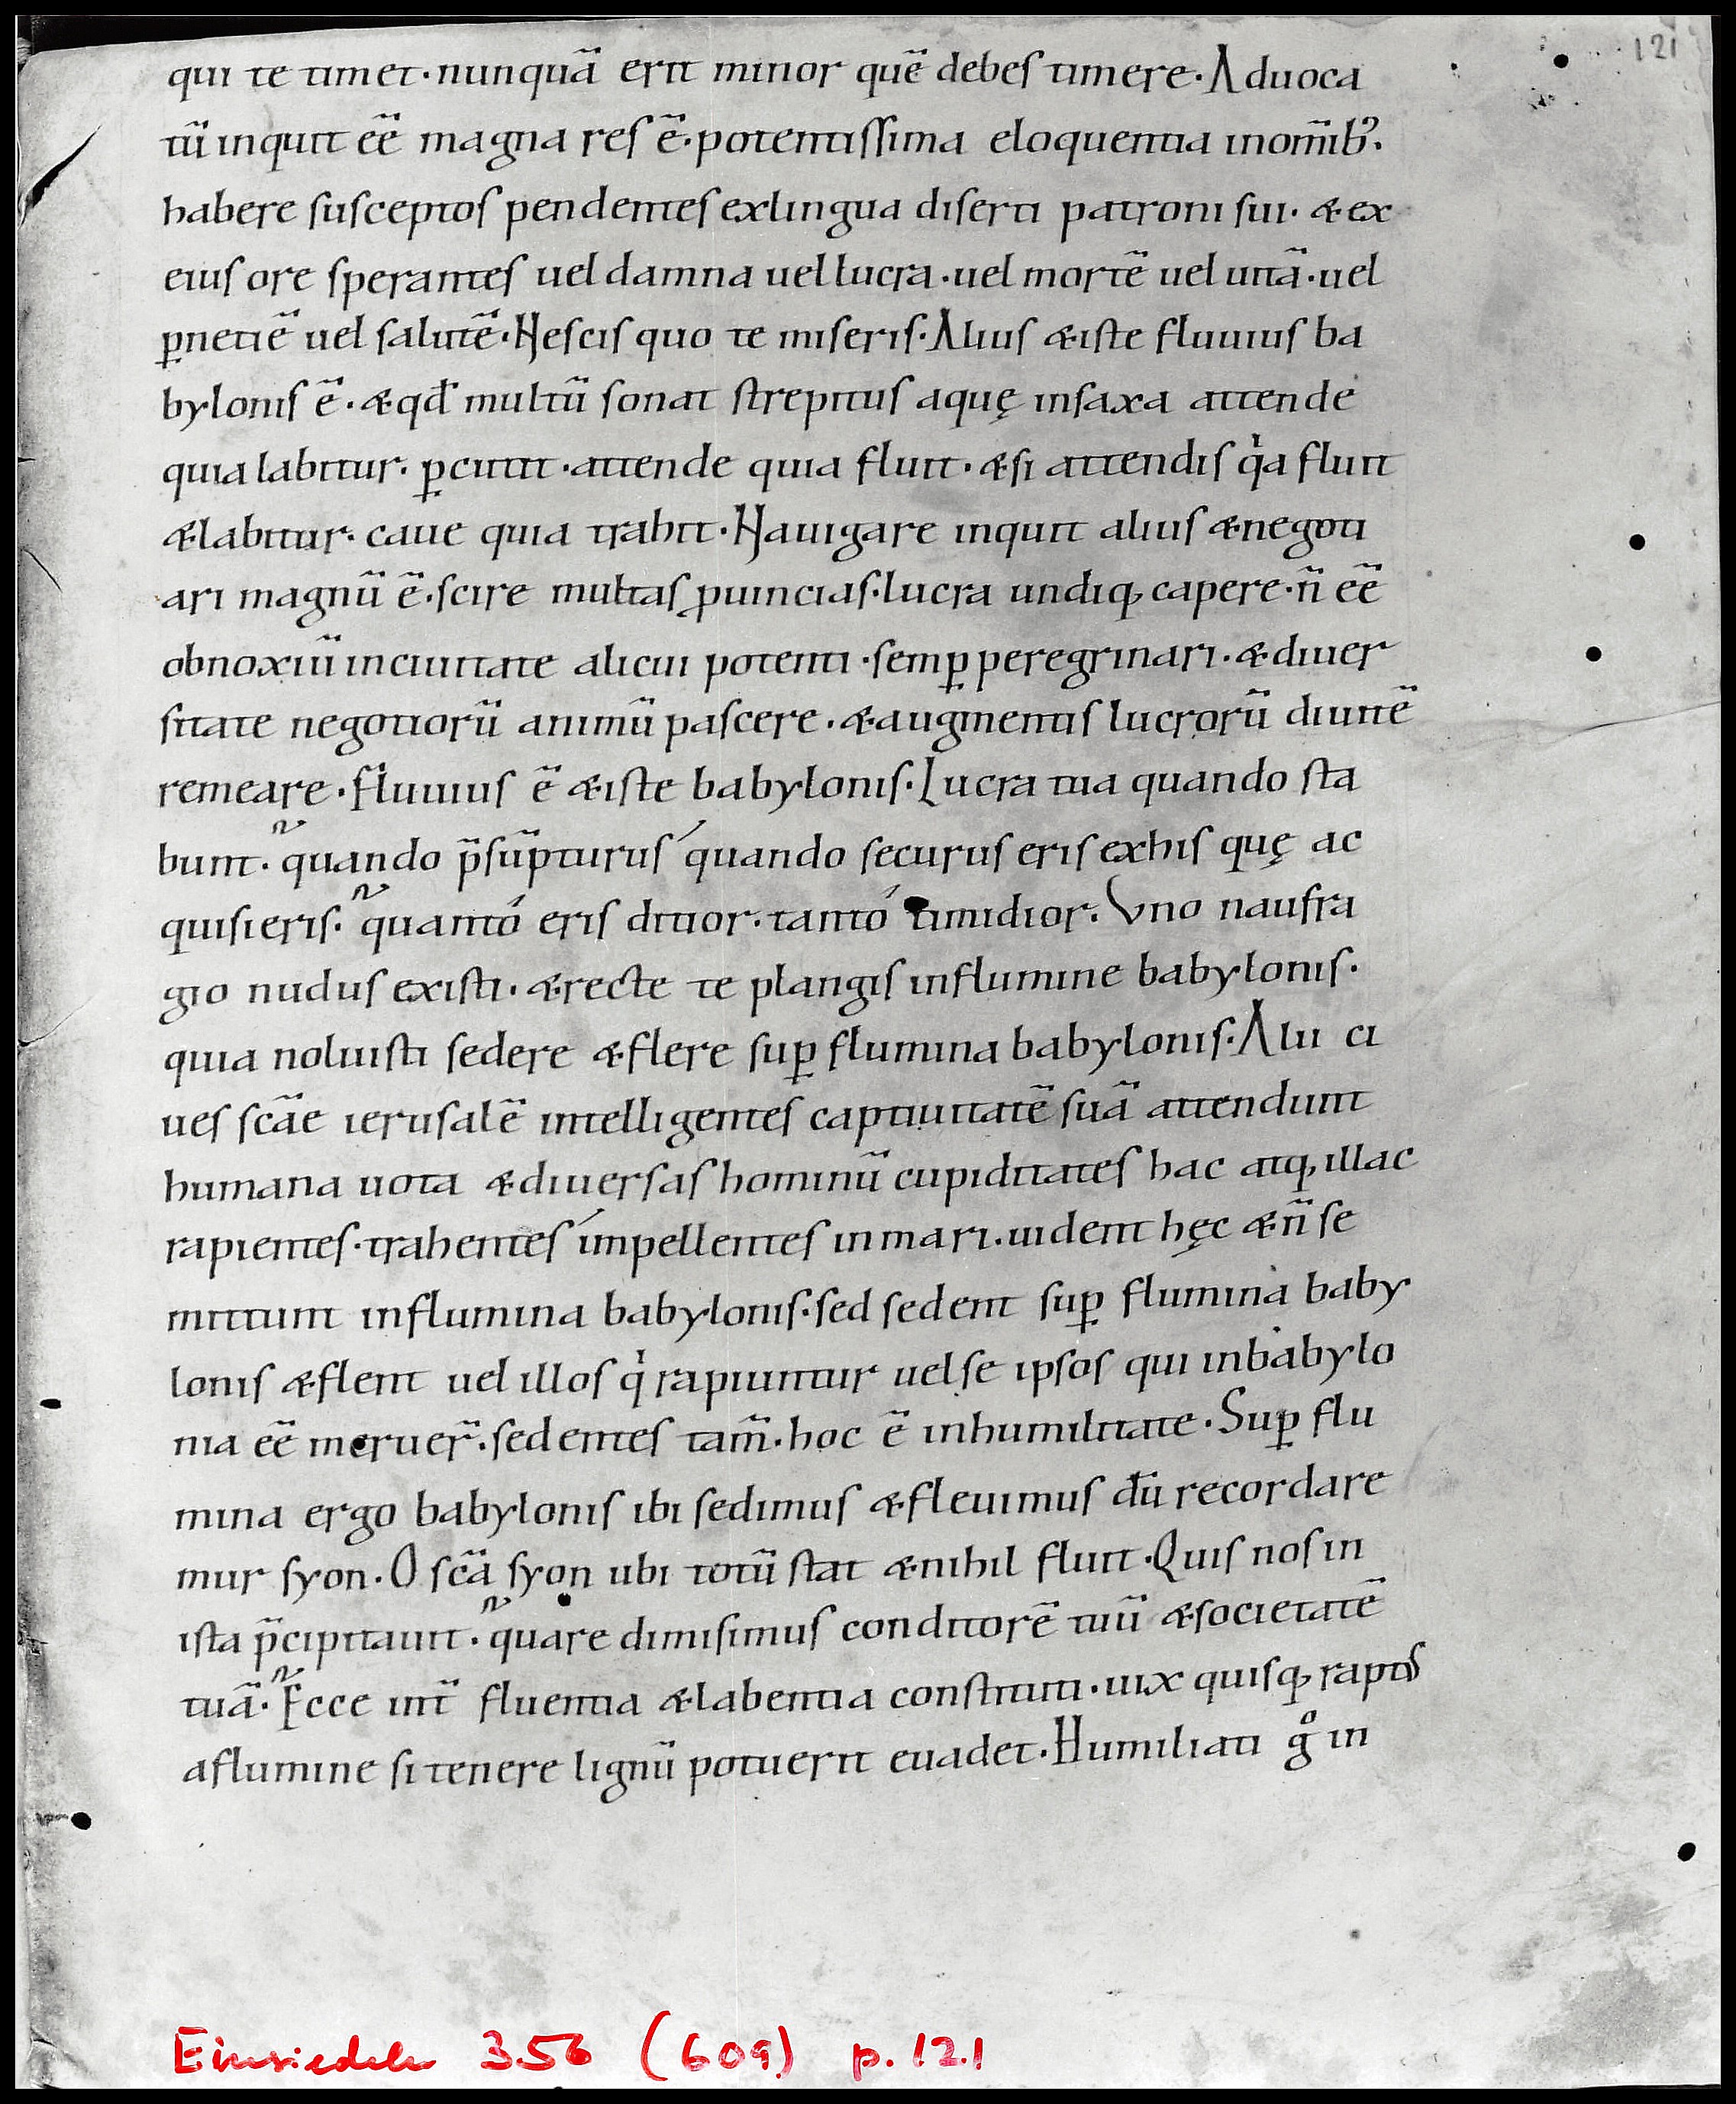 121
qui te timet · nunquã erit minor quẽ debes timere · Aduoca
tũ inquit eẽ magna res ẽ · potentissima eloquentia inom̃ib; ·
habere susceptos pendentes exlingua diserti patroni sui · & ex
eius ore sperantes uel damna uel lucra · uel mortẽ uel uitã · uel
ꝑnetiẽ uel salutẽ · Nescis quo te miseris · Alius &iste fluuius ba
bylonis ẽ · &qđ multũ sonat strepitus aquę insaxa attende
quia labitur · ꝑcutit · attende quia fluit · &si attendis qͥa fluit
&labitur · caue quia trahit · Nauigare inquit alius &negoti
ari magnũ ẽ · scire multas ꝓuincias · lucra undiq; capere · ñ eẽ
obnoxiũ inciuitate alicui potenti · semꝑ peregrinari · &diuer
sitate negotiorũ animũ pascere · &augmentis lucrorũ diuitẽ
remeare · fluuius ẽ &iste babylonis · Lucra tua quando sta
bunt · quando p̃sũpturus quando securus eris exhis quę ac
quisieris · quantó eris ditior · tantó timidior · Vno naufra
gio nudus existi · &recte te plangis influmine babylonis ·
quia noluisti sedere &flere suꝑ flumina babylonis · Alii ci
ues scãe ierusalẽ intelligentes captiuitatẽ suã attendunt
humana uota &diuersas hominũ cupiditates hac atq; illac
rapientes · trahentes ímpellentes inmari · uident hęc &ñ se
mittunt influmina babylonis · sed sedent suꝑ flumina baby
lonis &flent uel illos qͥ rapiuntur uel se ipsos qui inbabylo
nia eẽ meruer̃ · sedentes tam̃ · hoc ẽ inhumilitate · Suꝑ flu
mina ergo babylonis ibi sedimus &fleuimus dũ recordare
mur syon · O scã syon ubi totũ stat &nihil fluit · Quis nos in
ista p̃cipitauit · quare dimisimus conditorẽ tuũ &societatẽ
tuã · Ecce int̃ fluentia &labentia constituti · uix quisq; raptꝰ
aflumine si tenere lignũ potuerit euadet · Humiliati gͦ in
Einsiedeln 356 (609) p. 121